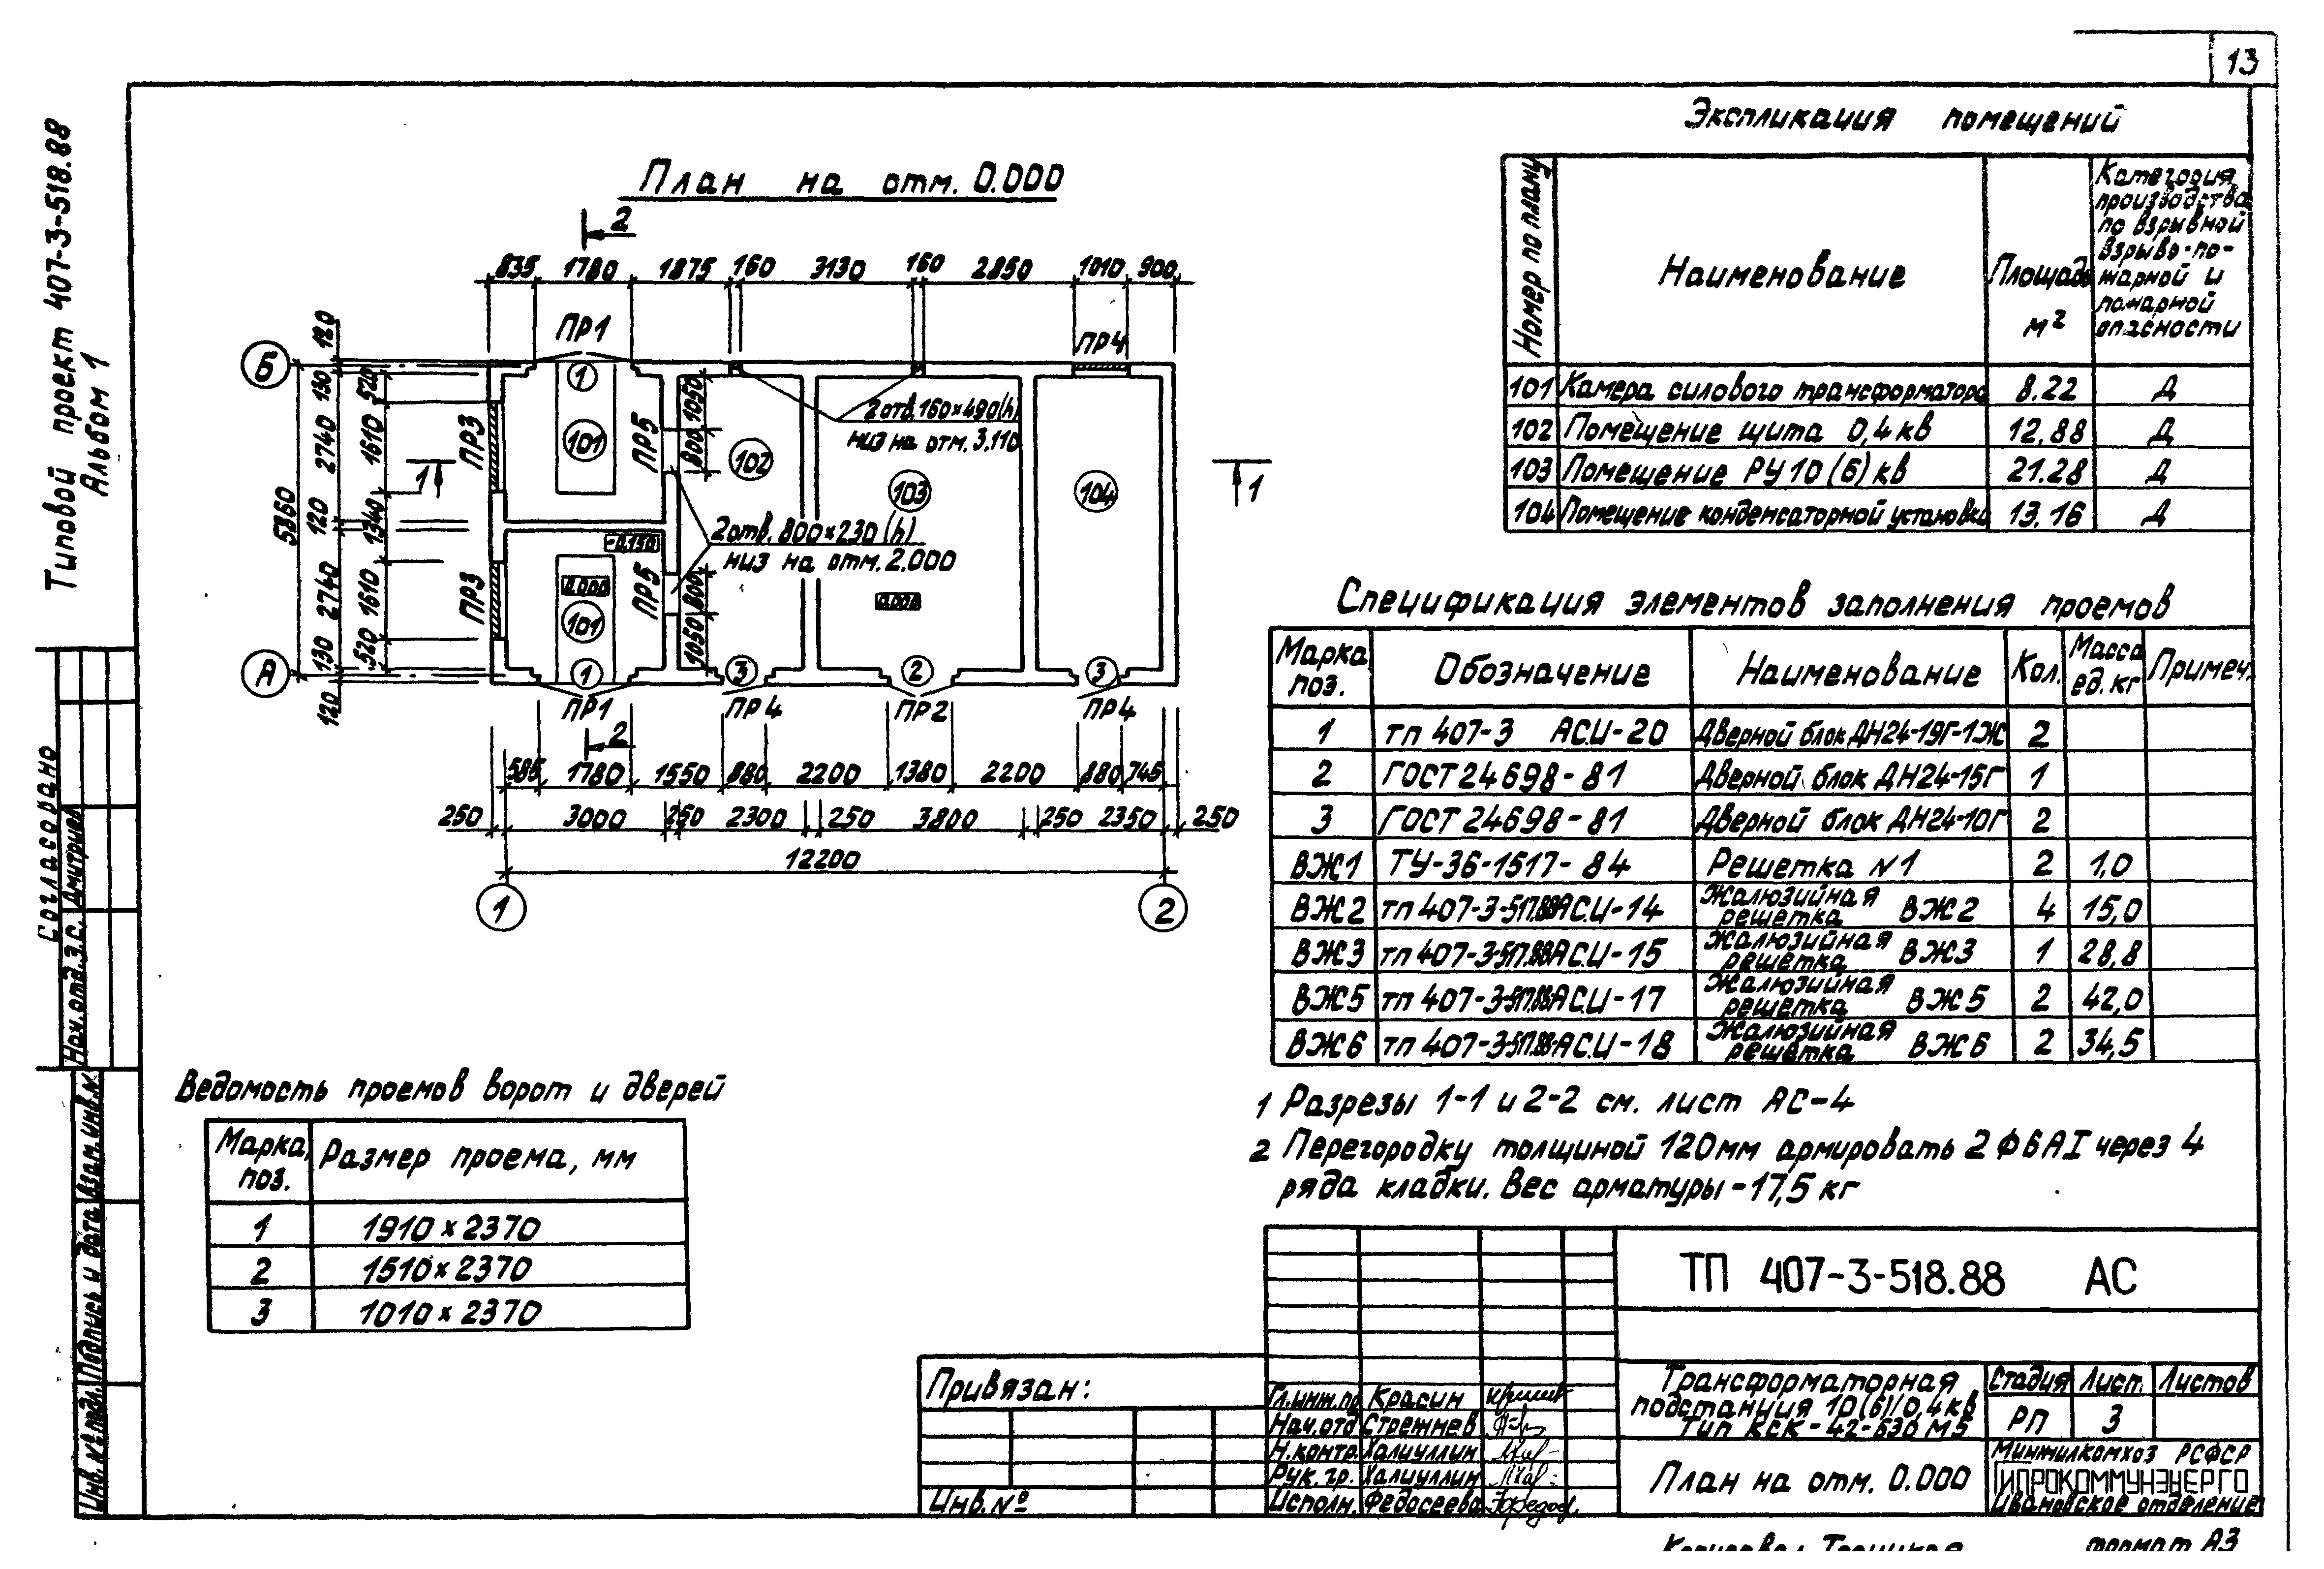 13
Типовой проект 407-3-518.88
Альбом 1
План на отм. 0.000
2
835 1780 1875 160 3130 160 2850 1010 900
ПР1 ПР4
Б
А
120 130 2740 120 2740 130 120
5360
520 1610 1340 1610 520
ПР3
ПР3
1 1
1
101
ПР5
1050
800
102
2 отв. 160×490(h)
низ на отм. 3.110
103
104
2 отв. 800×230 (h)
низ на отм. 2.000
-0.150
0.000
101
ПР5
800
1050
0.000
1 3 2 3
ПР1 ПР4 ПР2 ПР4
2
585 1780 1550 880 2200 1380 2200 880 745
250 3000 250 2300 250 3800 250 2350 250
12200
1 2
Экспликация помещений
Номер по плану
Наименование
Площадь м²
Категория
производства
по взрывной
взрыво-по-
жарной и
пожарной
опасности
101 Камера силового трансформатора 8.22 Д
102 Помещение щита 0,4 кв 12,88 Д
103 Помещение РУ 10 (6) кв 21.28 Д
104 Помещение конденсаторной установки 13.16 Д
Спецификация элементов заполнения проемов
Марка, поз. Обозначение Наименование Кол. Масса ед. кг Примеч.
1 тп 407-3 АС.И-20 Дверной блок ДН24-19Г-1Ж 2
2 ГОСТ 24698-81 Дверной блок ДН24-15Г 1
3 ГОСТ 24698-81 Дверной блок ДН24-10Г 2
ВЖ1 ТУ-36-1517-84 Решетка N1 2 1,0
ВЖ2 тп 407-3-517.88 АС.И-14 Жалюзийная решетка ВЖ2 4 15,0
ВЖ3 тп 407-3-517.88 АС.И-15 Жалюзийная решетка ВЖ3 1 28,8
ВЖ5 тп 407-3-517.88 АС.И-17 Жалюзийная решетка ВЖ5 2 42,0
ВЖ6 тп 407-3-517.88 АС.И-18 Жалюзийная решетка ВЖ6 2 34,5
1 Разрезы 1-1 и 2-2 см. лист АС-4
2 Перегородку толщиной 120мм армировать 2 Ф 6 АI через 4
ряда кладки. Вес арматуры - 17,5 кг
Ведомость проемов ворот и дверей
Марка, поз. Размер проема, мм
1 1910 × 2370
2 1510 × 2370
3 1010 × 2370
Согласовано
Нач. отд. Э.С. Дмитриев
Взам. инв. N
Подпись и дата
Инв. № подл.
Привязан:
Инв. №
Гл. инж. пр Красин
Нач. отд Стрежнев
Н. контр. Халиуллин
Рук. гр. Халиуллин
Исполн. Федосеева
ТП 407-3-518.88 АС
Трансформаторная
подстанция 10(6)/0,4 кв
Тип КСК-42-630 М5
Стадия Лист Листов
РП 3
План на отм. 0.000
Минжилкомхоз РСФСР
ГИПРОКОММУНЭНЕРГО
Ивановское отделение
Копировал Троицкая формат А3